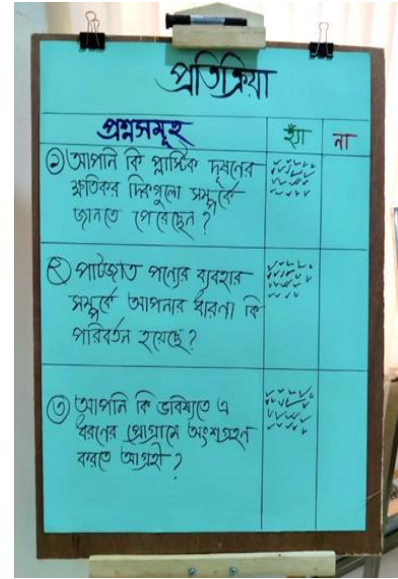 প্রতিক্রিয়া
প্রশ্নসমূহ হ্যাঁ না
১ আপনি কি প্লাস্টিক দূষনের
ক্ষতিকর দিকগুলো সম্পর্কে
জানতে পেরেছেন ?
২ পাটজাত পন্যের ব্যবহার
সম্পর্কে আপনার ধারনা কি
পরিবর্তন হয়েছে ?
৩ আপনি কি ভবিষ্যতে এ
ধরনের প্রোগ্রামে অংশগ্রহন
করতে আগ্রহী ?